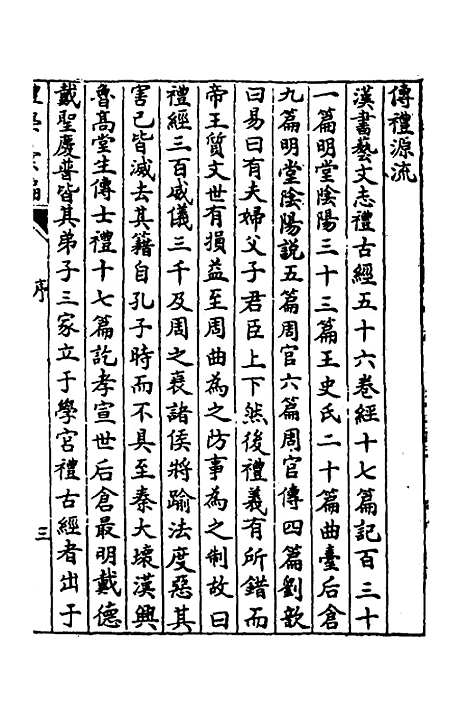 傳禮源流
漢書藝文志禮古經五十六卷經十七篇記百三十
一篇明堂陰陽三十三篇王史氏二十篇曲臺后倉
九篇明堂陰陽説五篇周官六篇周官傳四篇劉歆
曰易曰有夫婦父子君臣上下然後禮義有所錯而
帝王質文世有損益至周曲為之防事為之制故曰
禮經三百威儀三千及周之衰諸侯將踰法度惡其
害己皆滅去其籍自孔子時而不具至秦大壞漢興
魯高堂生傳士禮十七篇訖孝宣世后倉最明戴德
戴聖慶普皆其弟子三家立于學官禮古經者出于
序
三